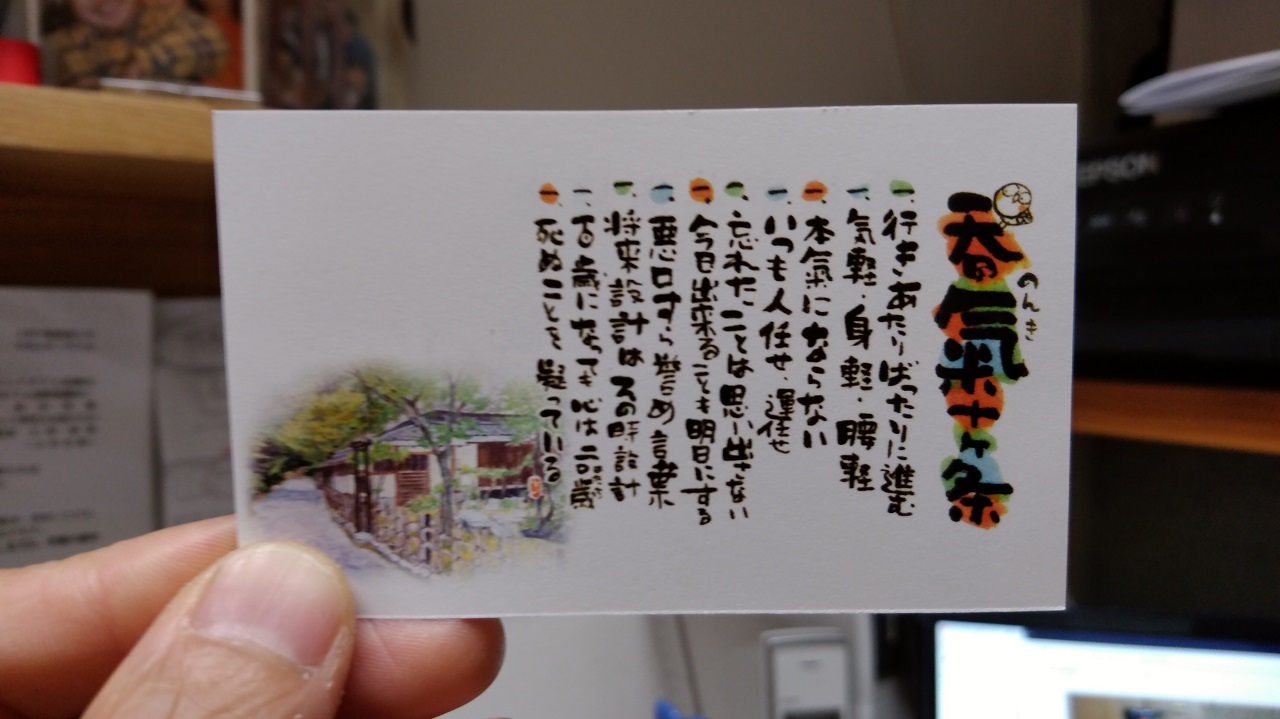 呑の氣十ヶ条
のんき
一、行きあたりばったりに進む
一、気軽・身軽・腰軽
一、本氣にならない
一、いつも人任せ、運任せ
一、忘れたことは思い出さない
一、今日出来ることも明日にする
一、悪口すら誉め言葉
一、将来設計はスの時設計
一、百歳になっても心は二歳
一、死ぬことを疑っている
EPSON